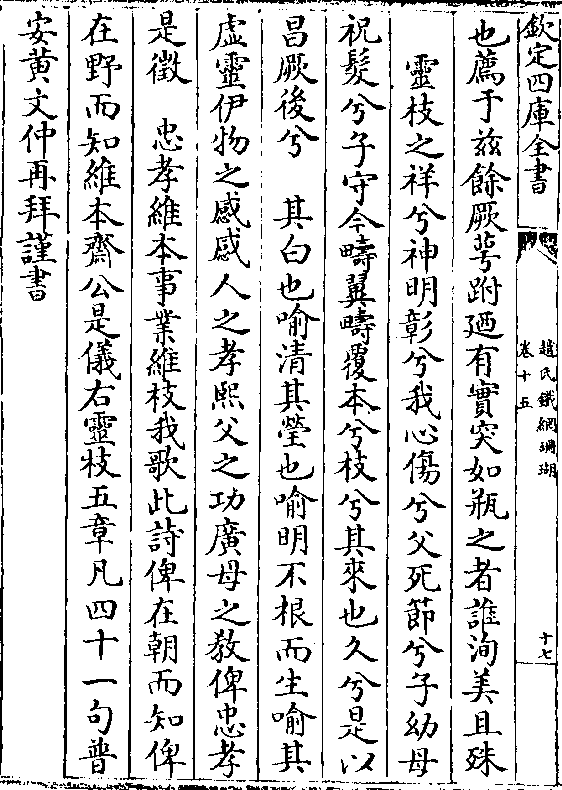 欽定四庫全書
趙氏鐵網珊瑚
卷十五
十七
也薦于兹餘厥萼跗廼有實突如瓶之者誰洵美且殊
靈枝之祥兮神明彰兮我心傷兮父死節兮子幼母
祝髮兮子守今疇翼疇覆本兮枝兮其來也久兮是以
昌厥後兮　其白也喻清其瑩也喻明不根而生喻其
虛靈伊物之感感人之孝熙父之功廣母之教俾忠孝
是徵　忠孝維本事業維枝我歌此詩俾在朝而知俾
在野而知維本齋公是儀右靈枝五章凡四十一句普
安黄文仲再拜謹書